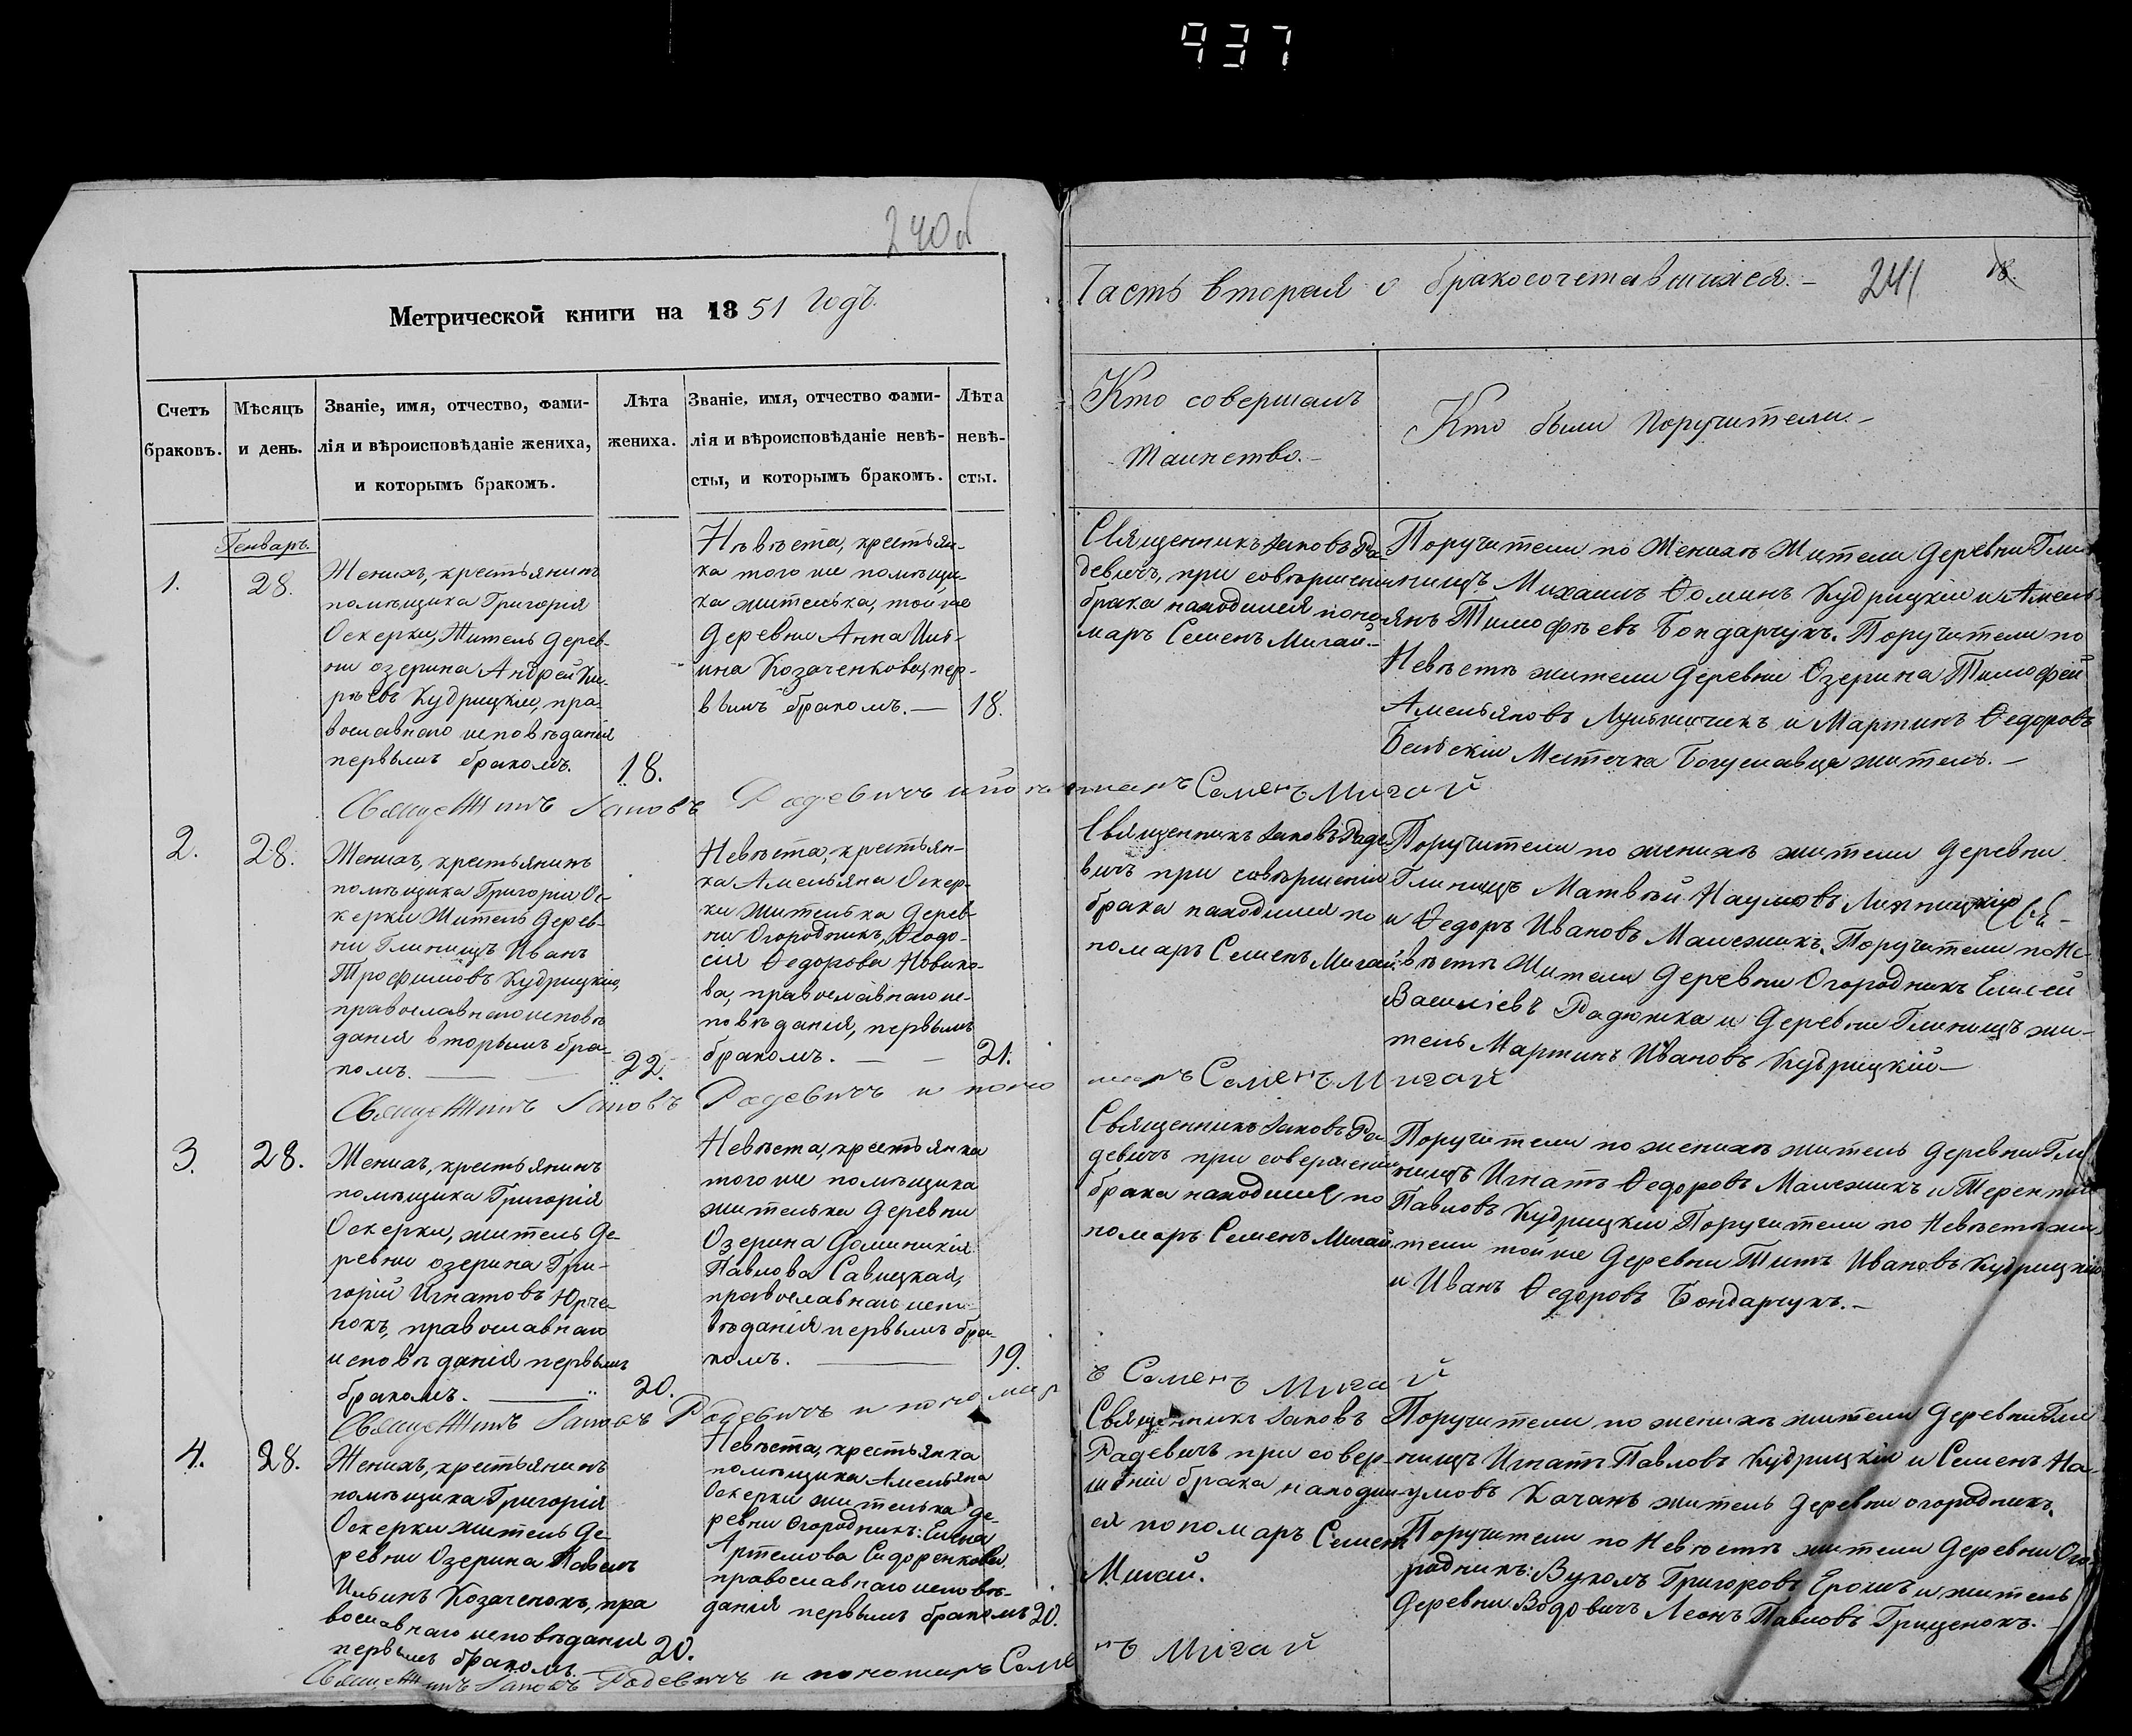 937
240 об
Метрической книги на 1851 годъ.
Счетъ браковъ.
Мѣсяцъ и день.
Званіе, имя, отчество, фами-
лія и вѣроисповѣданіе жениха,
и которымъ бракомъ.
Лѣта
жениха.
Званіе, имя, отчество фами-
лія и вѣроисповѣданіе невѣ-
сты, и которымъ бракомъ.
Лѣта
невѣ-
сты.
Часть вторая о бракосочетавшихся. — 241
Кто совершалъ
таинство. —
Кто были поручители. —
Генварь.
1.
28.
Женихъ, крестьянинъ
помѣщика Григорія
Оскерки, житель дерев-
ни озерина Андрей Ки-
рѣевъ Кудрицкій, пра-
вославнаго исповѣданія
первымъ бракомъ.
18.
Нѣвѣста, крестьян-
ка того же помѣщи-
ка жителька, той же
деревни Анна Иль-
ина Козаченкова, пер-
вымъ бракомъ. —
18.
Священникъ Іаковъ Ра-
девичъ, при совѣршении
брака находился поно-
маръ Семенъ Мигай. —
Поручители по Женихѣ Жители деревни Гли-
нищъ Михаилъ Ѳоминъ Кудрицкій и Амель-
янъ Тимофѣевъ Бондарчукъ. Поручители по
Невѣстѣ жители деревни Озерина Тимофей
Амельяновъ и Мартинъ Ѳедоровъ
Бельскій Местечка Богуславца житель. —
Священникъ Іаковъ Радевичъ и пономаръ Семенъ Мигай
2.
28.
Женихъ, крестьянинъ
помѣщика Григорія Ос-
керки житель дерев-
ни Глинищъ Иванъ
Трофимовъ Кудрицкій,
православнаго исповѣ
данія вторымъ бра-
комъ. —
22.
Невѣста, крестьян-
ка Амельяна Оскер-
ки жителька дерев-
ни Огородникъ, Ѳеодо-
сия Ѳедорова Новико-
ва, православнаго ис-
повѣданія, первымъ
бракомъ. — —
21.
Священникъ Іаковъ Раде-
вичъ при совѣршении
брака находился по
номаръ Семенъ Мигай.
Поручители по женихѣ жители деревни
Глинищъ Матвѣй Наумовъ
и Ѳедоръ Ивановъ Малежикъ, Поручители по Не-
вѣстѣ Жители деревни Огородникъ Елисей
Василіевъ Радюшка и деревни Глинищъ жи-
тель Мартинъ Ивановъ Кудрицкій —
Священникъ Іаковъ Радевичъ и пономаръ Семенъ Мигай
3.
28.
Женихъ, крестьянинъ
помѣщика Григорія
Оскерки, житель де-
ревни озерина Гри-
горій Игнатовъ Юрче-
нокъ, православнаго
исповѣданія первымъ
бракомъ. —
20.
Невѣста, крестьянка
того же помѣщика
жителька деревни
Озерина Доминикія
Павлова Савицкая,
православнаго испо-
вѣданія первымъ бра-
комъ. —
19.
Священникъ Іаковъ Ра-
девичъ при совершении
брака находился по
номаръ Семенъ Мигай.
Поручители по женихѣ житель деревни Гли-
нищъ Игнатъ Ѳедоровъ Малежикъ и Терентій
Павловъ Кудрицкій Поручители по Невѣстѣ жи-
тели той же деревни Титъ Ивановъ Кудрицкій
и Иванъ Ѳедоровъ Бондарчукъ. —
Священникъ Іаковъ Радевичъ и пономаръ Семенъ Мигай
4.
28.
Женихъ, крестьянинъ
помѣщика Григорія
Оскерки житель де-
ревни Озерина Павелъ
Ильинъ Козаченокъ, пра
вославнаго исповѣданія
первымъ бракомъ.
20.
Невѣста, крестьянка
помѣщика Амельяна
Оскерки жителька де-
ревни Огородникъ: Елена
Артемова Сидоренкова,
православнаго исповѣ-
данія первымъ бракомъ
20.
Священникъ Іаковъ
Радевичъ при совер-
шеніи брака находил-
ся пономаръ Семенъ
Мигай.
Поручители по женихѣ жители деревни Гли
нищъ Игнатъ Павловъ Кудрицкій и Семенъ На-
умовъ Качанъ житель деревни огородникъ.
Поручители по Невѣстѣ жители деревни Ого-
родникъ: Вуколъ Григоровъ Ерошъ и житель
деревни Водовичъ Леонъ Павловъ Грищенокъ. —
Священникъ Іаковъ Радевичъ и пономаръ Семенъ Мигай